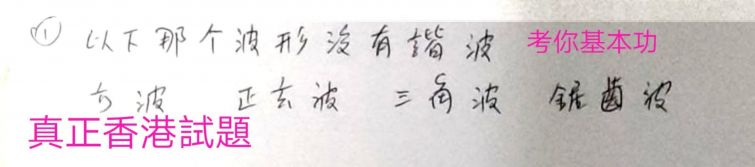 ① 以下那个波形沒有諧波 考你基本功
方波 正玄波 三角波 鋸齒波
真正香港試題